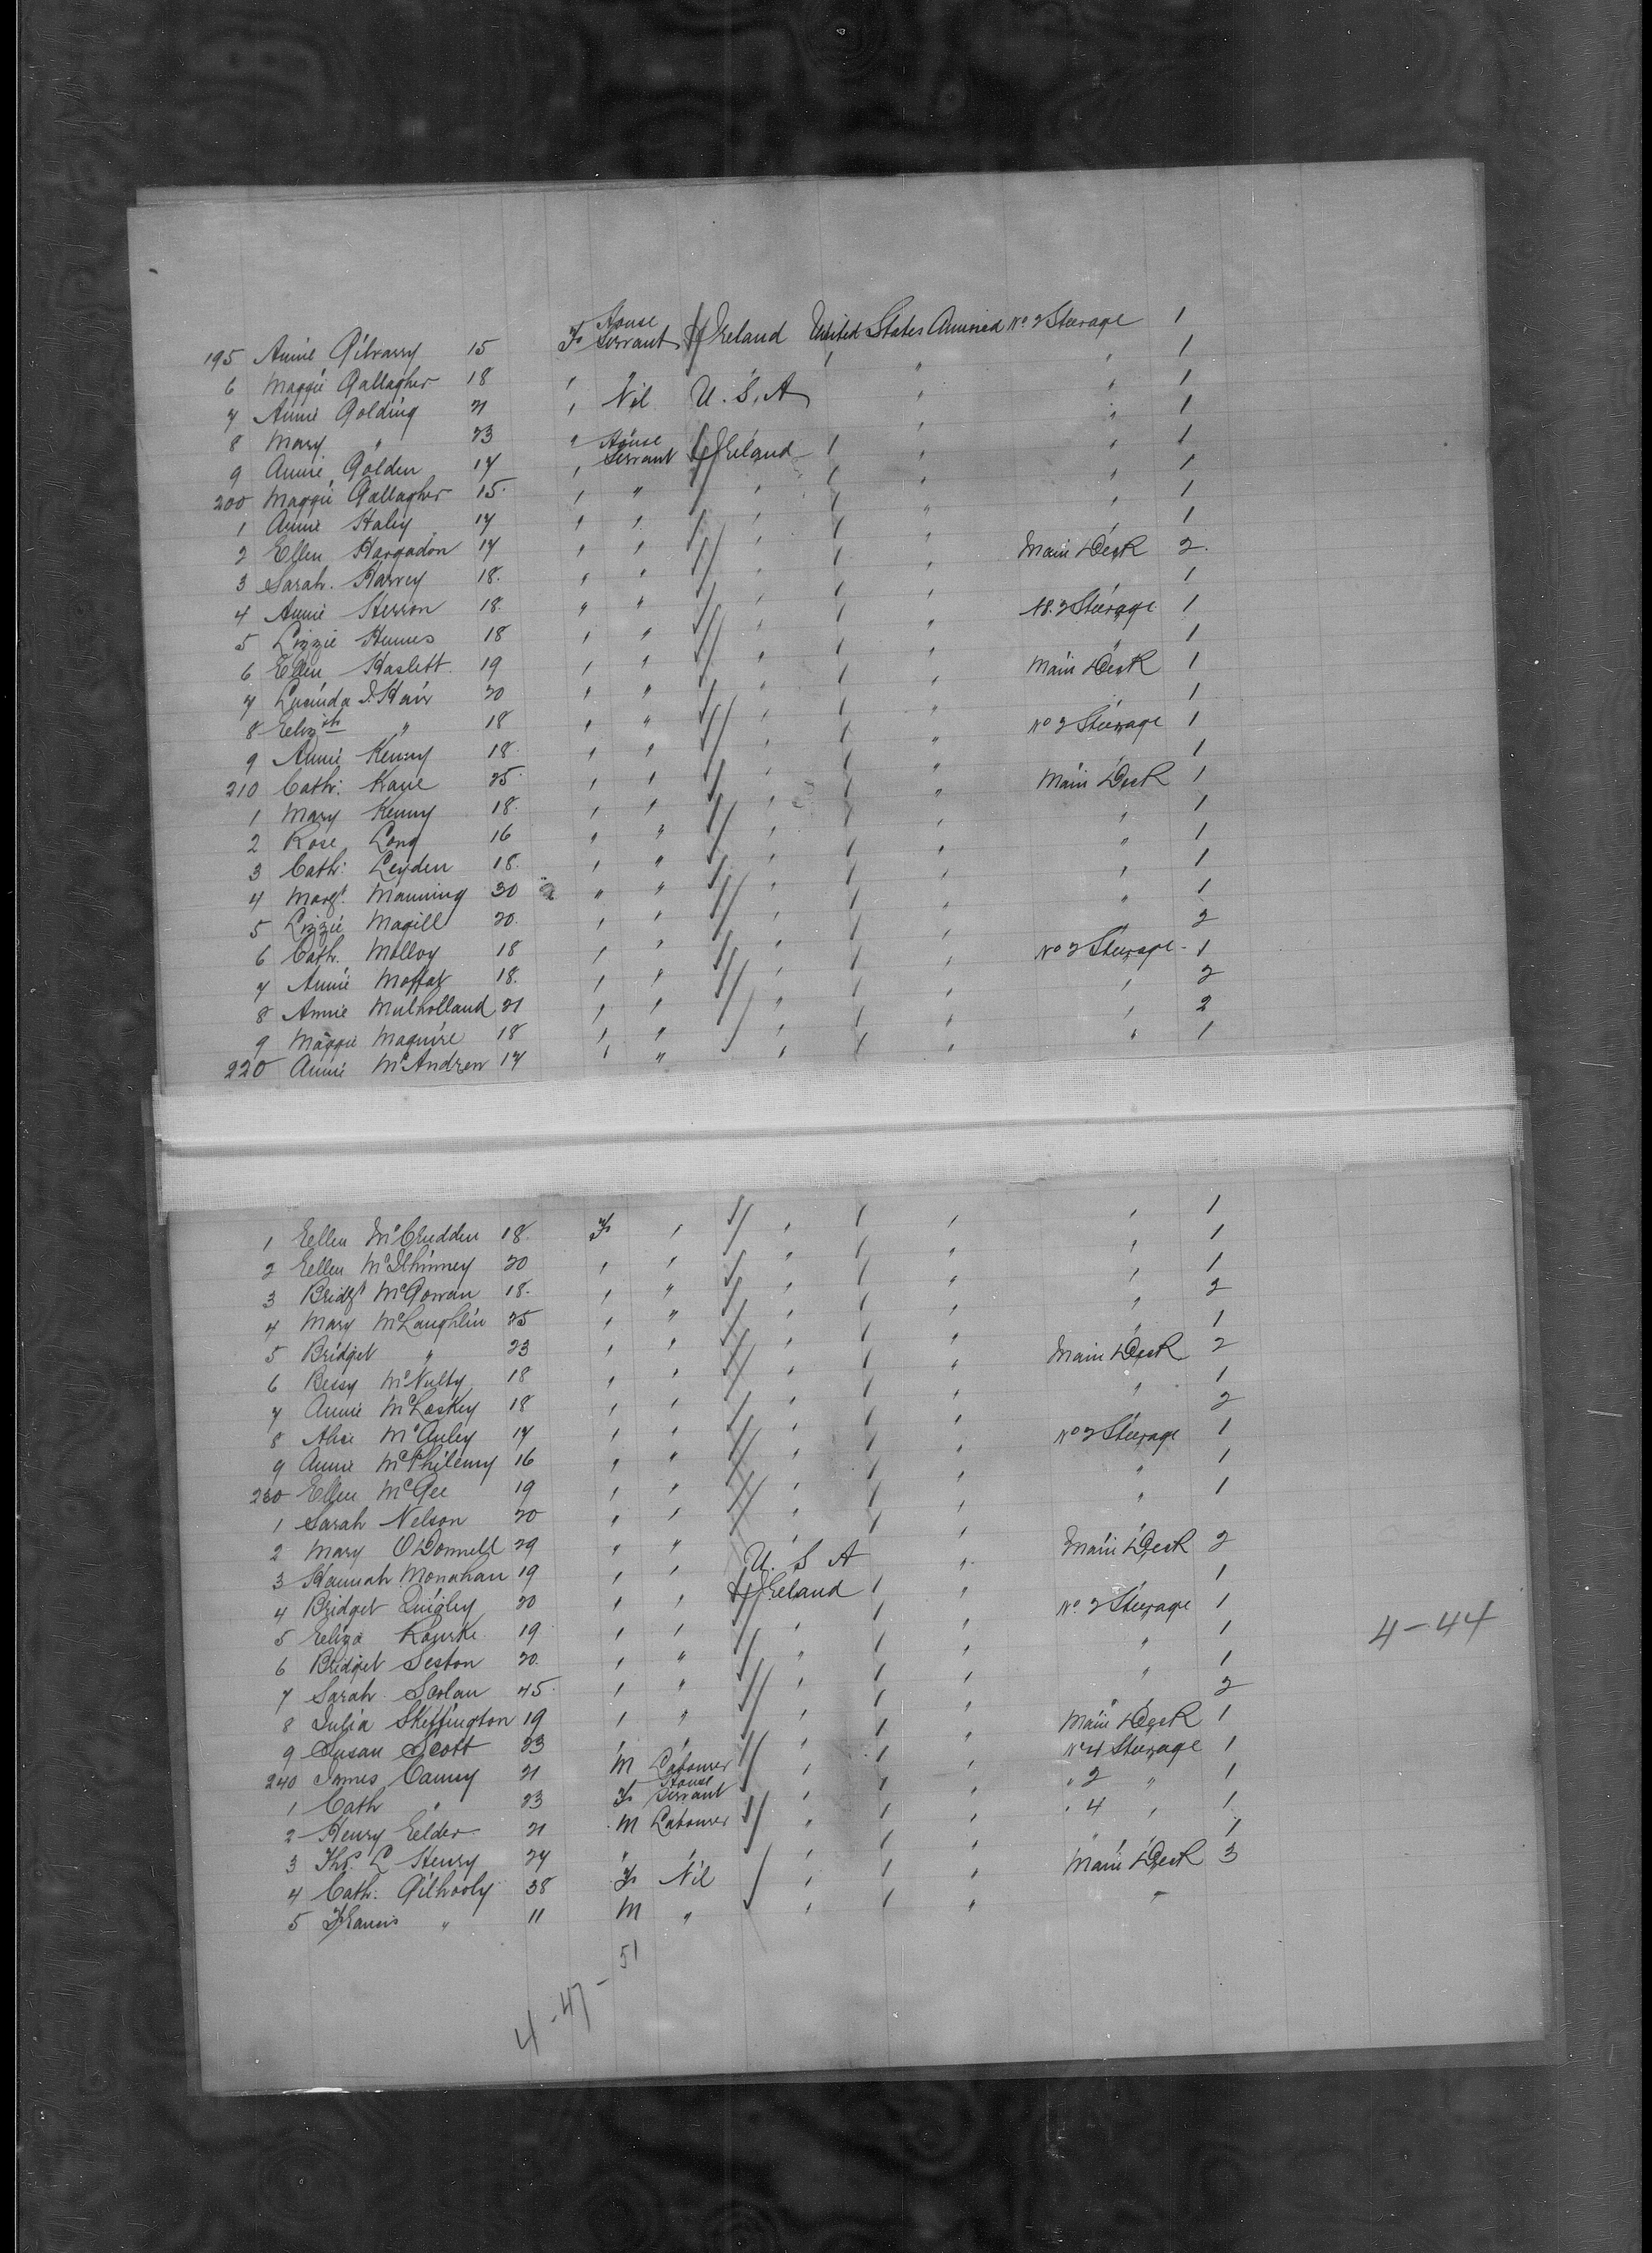 195 Annie Gilvarry 15 F House Servant Ireland United States America No 2 Steerage 1
6 Maggie Gallagher 18 " " " " " 1
7 Annie Golding 21 " Nil U.S.A " " 1
8 Mary " 23 " " 1
9 Annie Golden 17 " House Servant Ireland " " " 1
200 Maggie Gallagher 15 " " " " " " 1
1 Annie Haley 17 " " " " " " 1
2 Ellen Hargadon 17 " " " " " " 1
3 Sarah Harvey 18 " " " " " Main Deck 2
4 Annie Herron 18 " " " " " " 1
5 Lizzie Humes 18 " " " " " No 2 Steerage 1
6 Ellen Haslett 19 " " " " " " 1
7 Lucinda J. Hair 20 " " " " " Main Deck 1
8 Elizth " 18 " " " " " " 1
9 Annie Kenny 18 " " " " " No 2 Steerage 1
210 Cath: Kane 25 " " " " " " 1
1 Mary Kenny 18 " " " " " Main Deck 1
2 Rose Long 16 " " " " " " 1
3 Cath: Leyden 18 " " " " " " 1
4 Margt Manning 30 " " " " " " 1
5 Lizzie Magill 20 " " " " " " 1
6 Cath. Molloy 18 " " " " " " 2
7 Annie Moffat 18 " " " " " No 2 Steerage 1
8 Annie Mulholland 21 " " " " " " 2
9 Maggie Maguire 18 " " " " " " 2
220 Annie McAndrew 17 " " " " " " 1
1 Ellen McCrudden 18 F " " " " " 1
2 Ellen McIlhinney 20 " " " " " " 1
3 Bridgt McGowan 18 " " " " " " 1
4 Mary McLaughlin 25 " " " " " " 2
5 Bridget " 23 " " " " " " 1
6 Bessy McNulty 18 " " " " " Main Deck 2
7 Annie McLoskey 18 " " " " " " 1
8 Alice McAuley 17 " " " " " " 2
9 Annie McPhilemy 16 " " " " " No 2 Steerage 1
230 Ellen McGee 19 " " " " " " 1
1 Sarah Nelson 20 " " " " " " 1
2 Mary O'Donnell 29 " " " " " "
3 Hannah Monahan 19 " " U. S A " Main Deck 2
4 Bridget Quigley 20 " " Ireland " " " 1
5 Eliza Rourke 19 " " " " " No. 2 Steerage 1
6 Bridget Seston 20 " " " " " " 1
7 Sarah Scolan 45 " " " " " " 1
8 Julia Skeffington 19 " " " " " " 2
9 Susan Scott 23 " " " " " Main Deck 1
240 James Canny 21 M Labourer " " " No 4 Steerage 1
1 Cath " 23 F House Servant " " " " 2 " 1
2 Henry Elder 21 M Labourer " " " " 4 " 1
3 Thos. L Henry 24 " " " " " " " 1
4 Cath. Gilhooly 38 F Nil " " " Main Deck 3
5 Francis " 11 M " " " " "
4-44
4-47-51